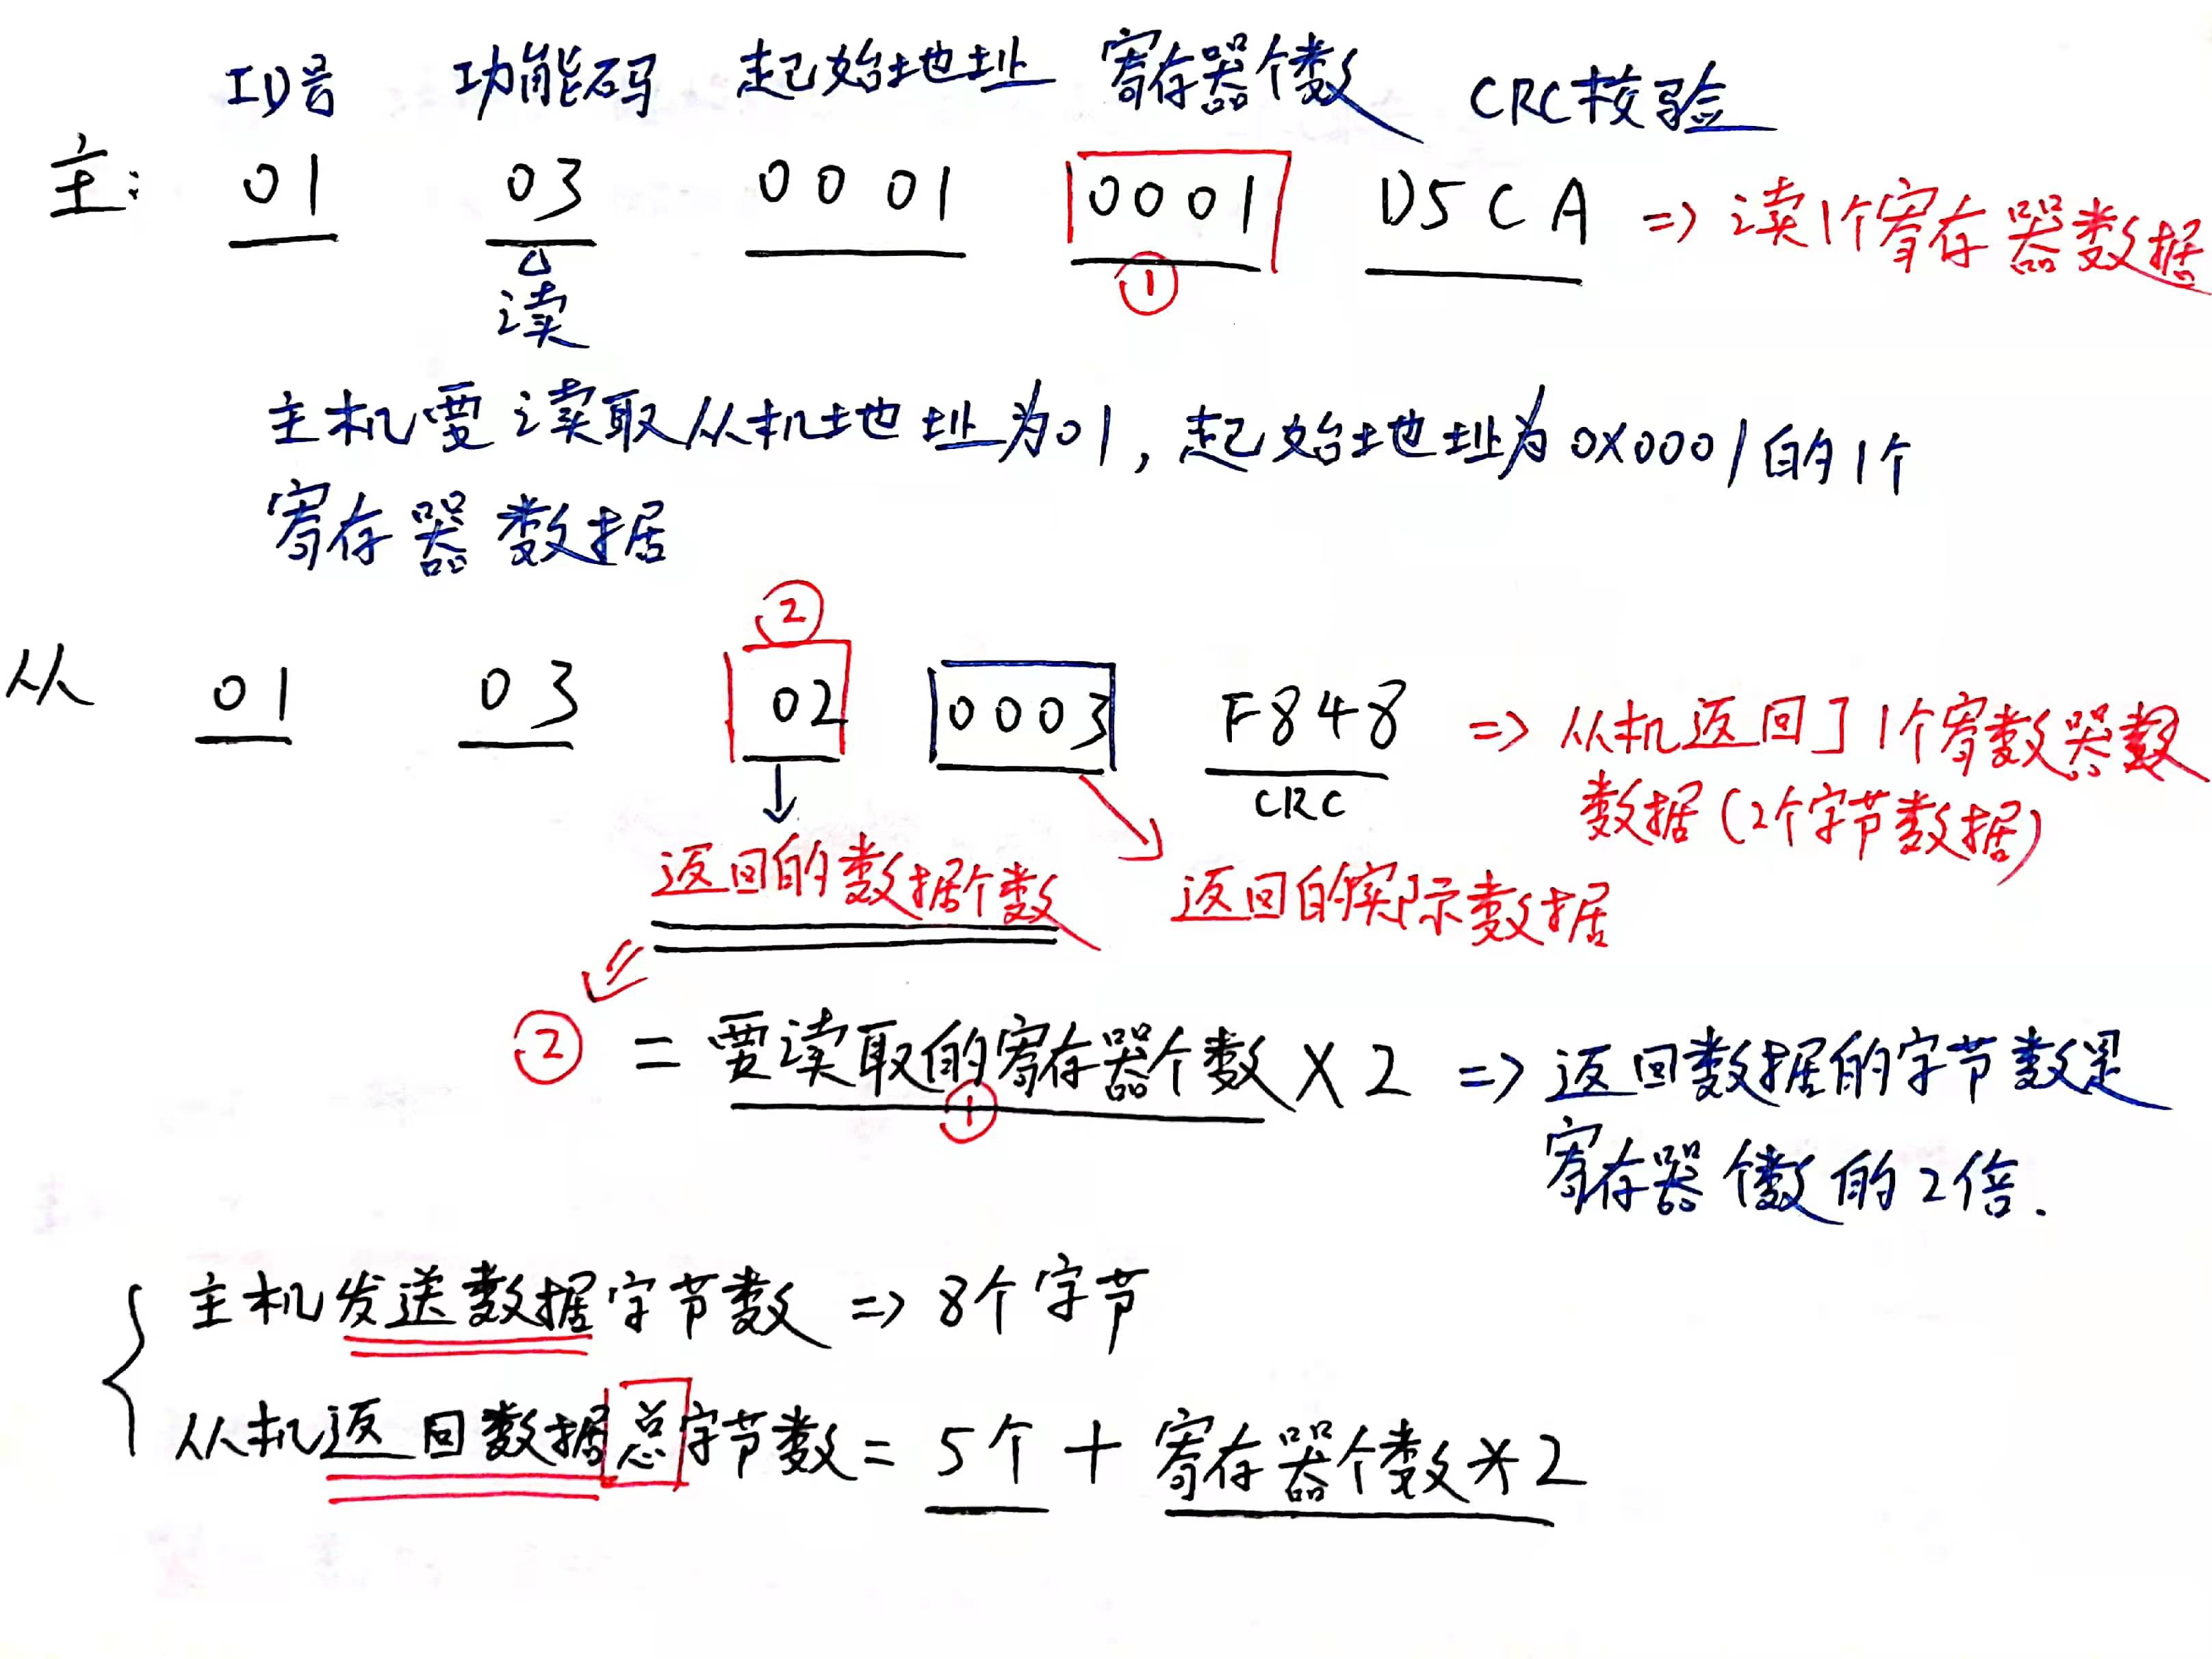 ID号 功能码 起始地址 寄存器个数 CRC校验
主: 01 03 0001 0001 D5CA => 读1个寄存器数据
①
读
主机要读取从机地址为01,起始地址为0X0001的1个
寄存器数据
②
从 01 03 02 0003 F848 => 从机返回了1个寄数器数
CRC
数据(2个字节数据)
返回的数据个数 返回的实际数据
② = 要读取的寄存器个数 X 2 => 返回数据的字节数是
①
寄存器个数的2倍.
主机发送数据字节数 => 8个字节
从机返回数据总字节数 = 5个 + 寄存器个数*2